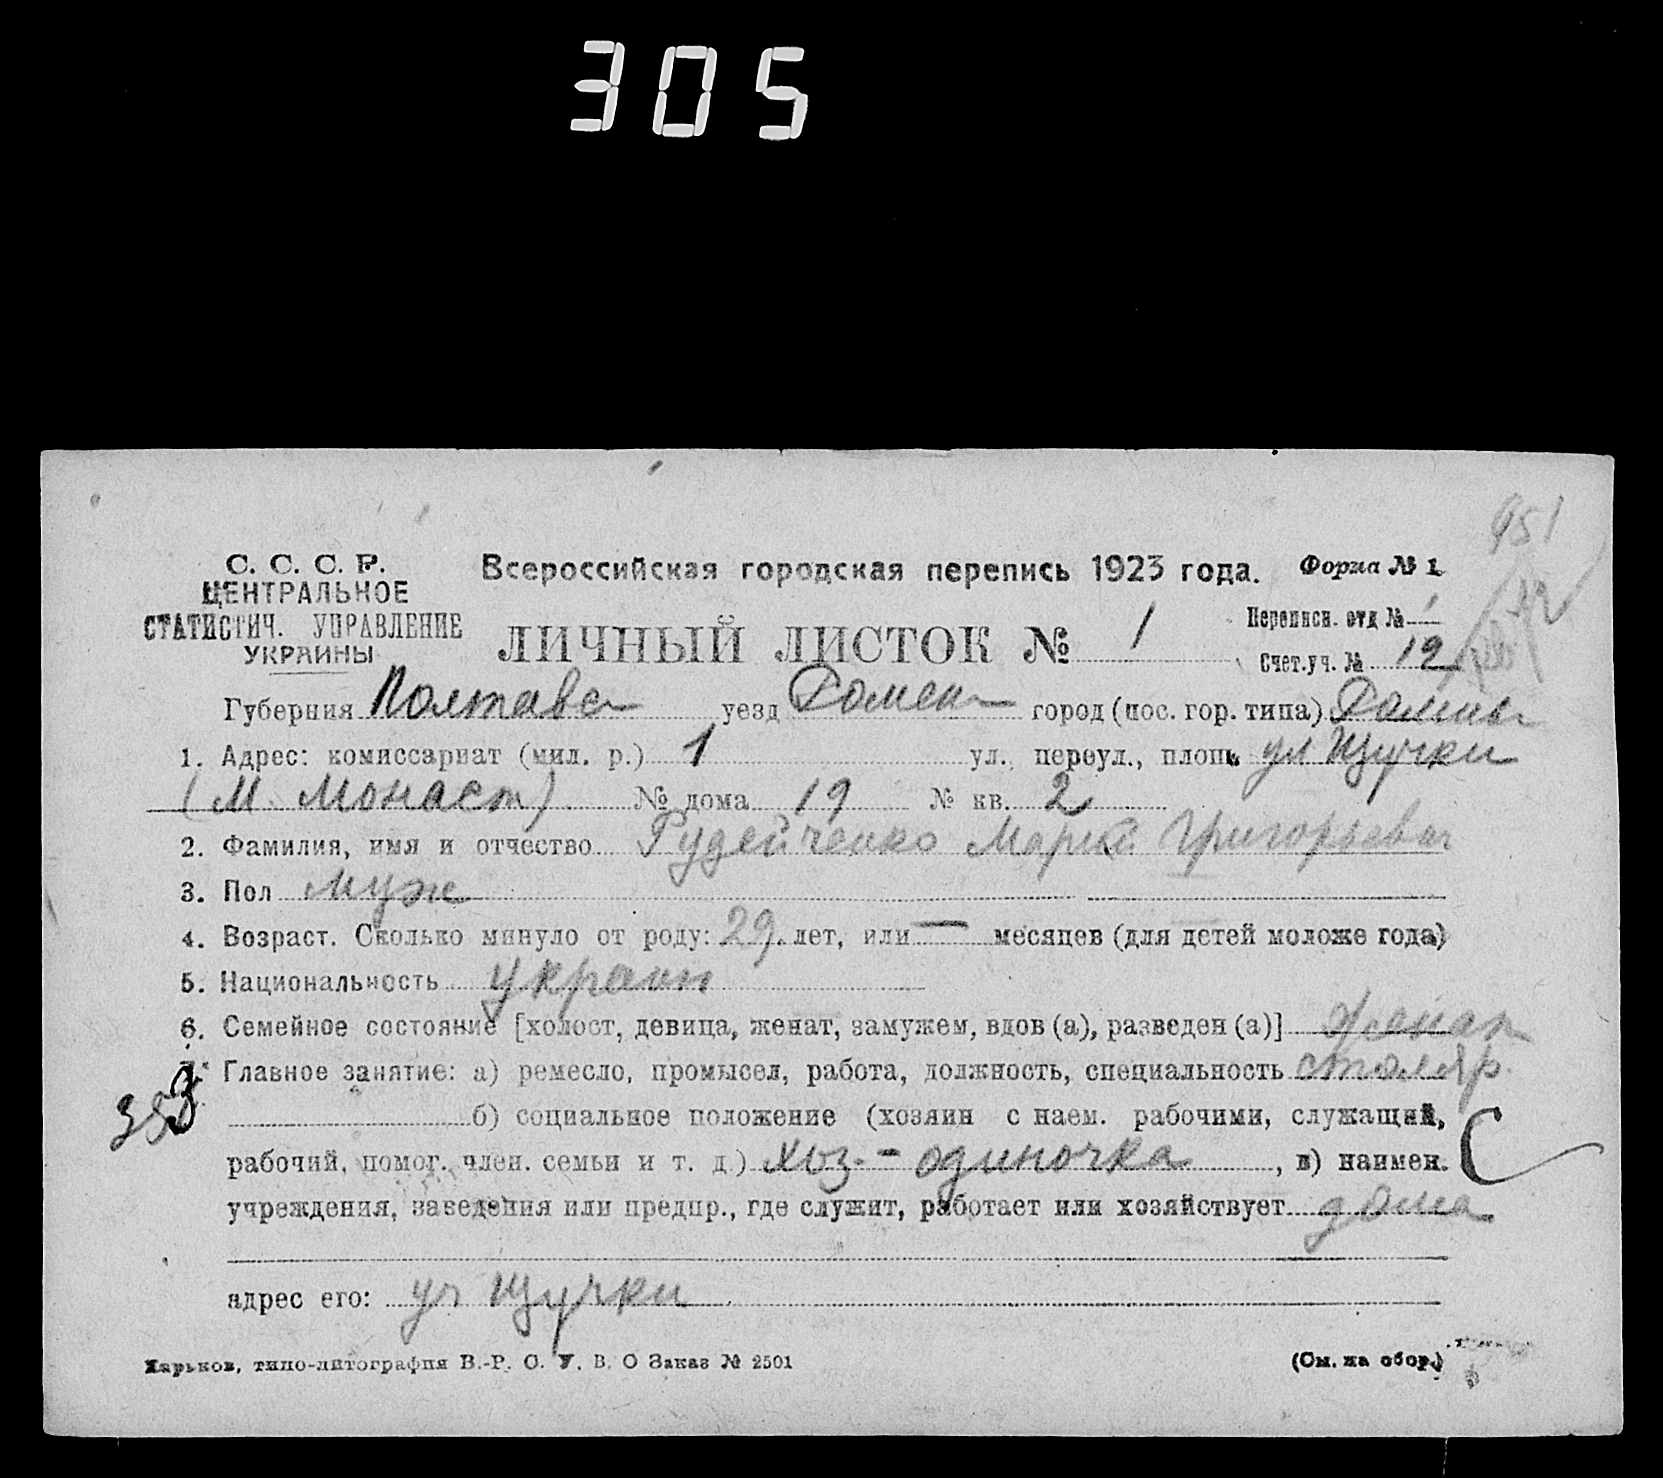 305
951
С. С. С. Р.
ЦЕНТРАЛЬНОЕ
СТАТИСТИЧ. УПРАВЛЕНИЕ
УКРАИНЫ
Всероссийская городская перепись 1923 года. Форма № 1
ЛИЧНЫЙ ЛИСТОК № 1
Переписн. отд № 1
Счет.уч. № 12
Губерния Полтавс уезд Ромен город (пос. гор. типа) Ромны
1. Адрес: комиссариат (мил. р.) 1 ул., переул., площ. ул Щучки
(М. Монаст) № дома 19 № кв. 2
2. Фамилия, имя и отчество Рудейченко Григорьевич
3. Пол муж
4. Возраст. Сколько минуло от роду: 29 лет, или — месяцев (для детей моложе года)
5. Национальность украин
6. Семейное состояние [холост, девица, женат, замужем, вдов (а), разведен (а)] женат
7. Главное занятие: а) ремесло, промысел, работа, должность, специальность столяр.
353 б) социальное положение (хозяин с наем. рабочими, служащий,
рабочий, помог. член. семьи и т. д.) хоз. - одиночка, в) наимен. С
учреждения, заведения или предпр., где служит, работает или хозяйствует дома
адрес его: ул Щучки
Харьков, типо-литография В.-Р. С. У. В. О Заказ № 2501
(См. на обор.)